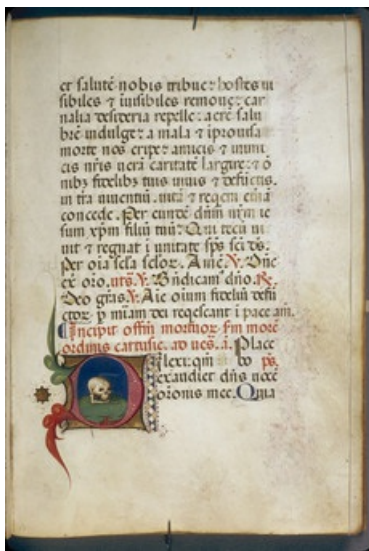 et salutē nobis tribue: hostes ui
sibiles ⁊ īuisibiles remoue: car
nalia desideria repelle: aerē salu
brē indulge: a mala ⁊ iprouisa
morte nos eripe: amicis ⁊ inimi
cis nr̄is uerā caritatē largire: ⁊ ō
nibꝫ fidelibꝫ tuis uiuis ⁊ defūctis.
in tra uiuentiū. uitā ⁊ reqem
concede. Per eundē dn̄m nr̄m ie
sum xp̄m filiū tuū: Qui tecū ui
uit ⁊ regnat ī unitate sp̄s sc̄i ds̄.
Per oīa sc̄la sc̄loꝝ. Amē. V. Dn̄e
ex. oro. uts̄. V. Bn̄dicam̄ dn̄o. R.
Deo gr̄as. V. Aīe oīum fideliū defū
ctoꝝ p̱ miam̄ dei reqescant ī pace. am̄.
Incipit offm̄ mortuoꝝ sm̄ morē
ordinis cartusie. ad ues̄. a. Place
bo ps.
Dilexi: qm̄
exaudiet dn̄s uocē
oronis mee. Quia